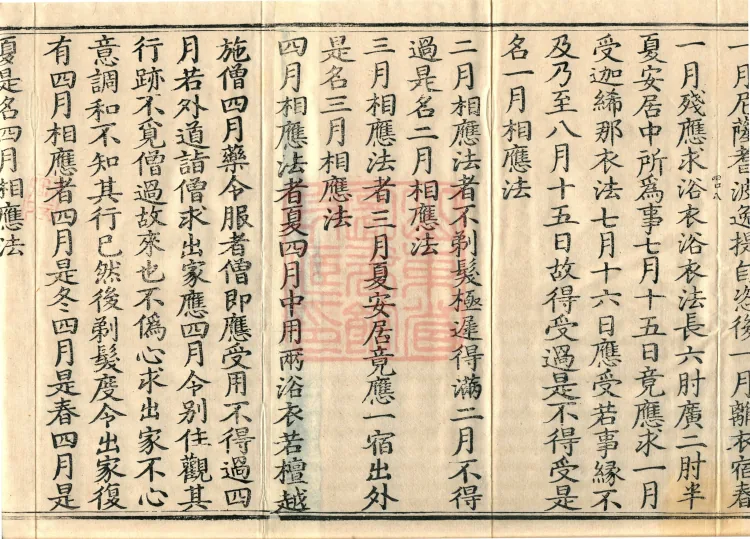 一月尼薩耆波逸提自恣後一月離衣宿春
一月殘應求浴衣浴衣法長六肘廣二肘半
夏安居中所爲事七月十五日竟應求一月
受迦絺那衣法七月十六日應受若事緣不
及乃至八月十五日故得受過是不得受是
名一月相應法
二月相應法者不剃髮極遲得滿二月不得
過是名二月相應法
三月相應法者三月夏安居竟應一宿出外
是名三月相應法
四月相應法者夏四月中用雨浴衣若檀越
施僧四月藥令服者僧即應受用不得過四
月若外道詣僧求出家應四月令別住觀其
行跡不覓僧過故來也不僞心求出家不心
意調和不知其行已然後剃髮度令出家復
有四月相應者四月是冬四月是春四月是
夏是名四月相應法